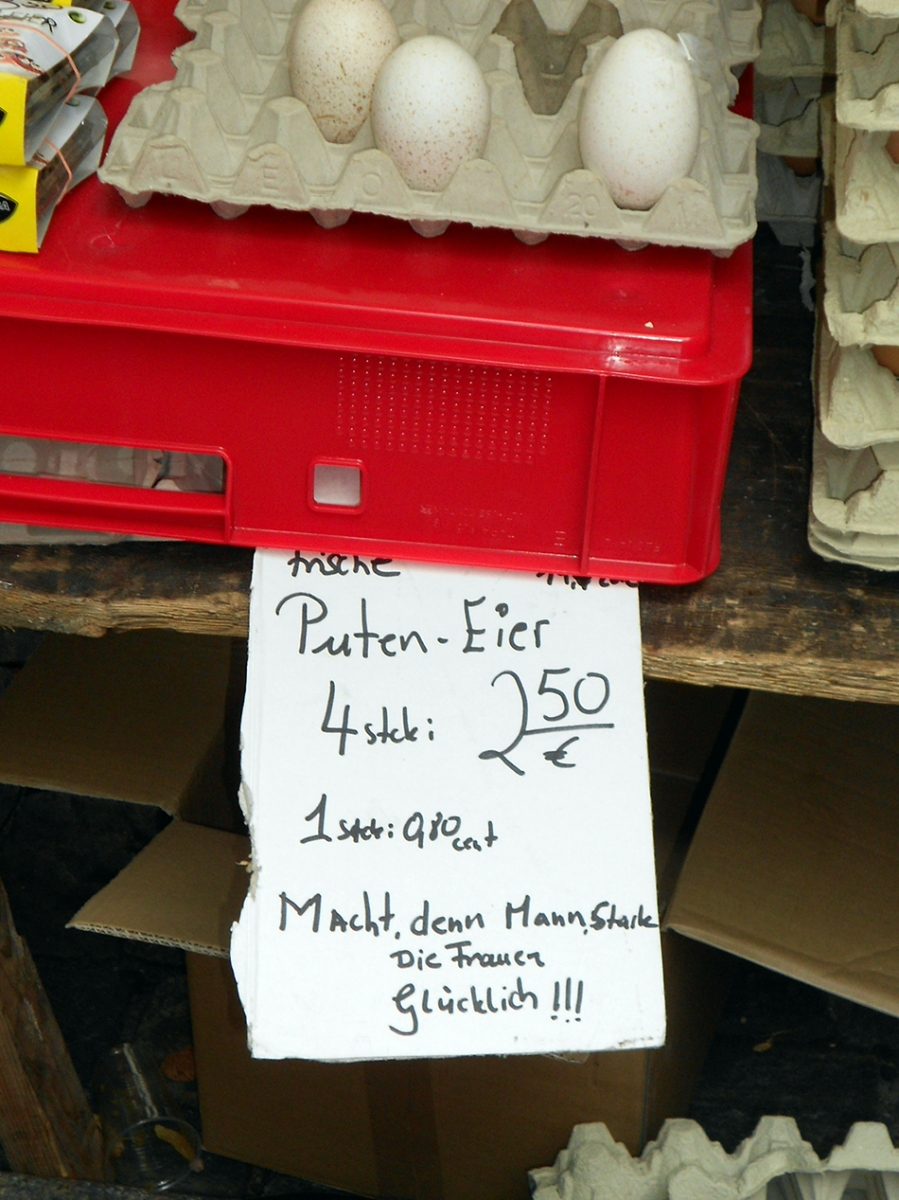 frische
Puten-Eier
4 stck: 2 50
€
1 stck: 0,80 cent
Macht, denn Mann, Stark
Die Frauen
Glücklich !!!
20